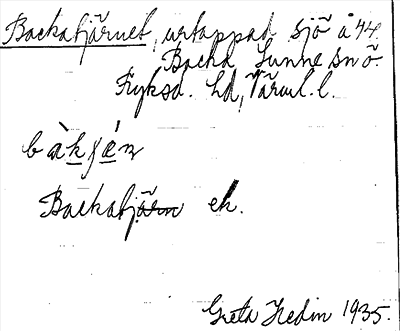 Backatjärnet, urtappad sjö å 44.
Backa Sunne sn ö.
Fryksd. hd, Värml. l.
bàkɟɛ́n
Backatjärn ek.
Greta Hedin 1935.